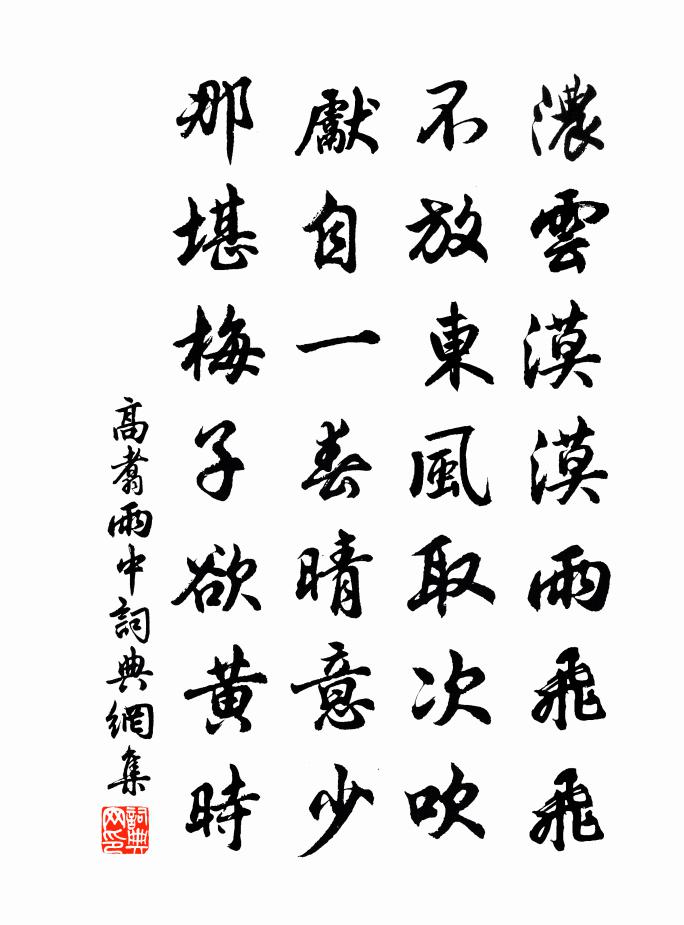 濃雲漠漠雨飛飛
不放東風取次吹
獻自一春晴意少
那堪梅子欲黄時
高翥雨中詞典網集
詞典网印